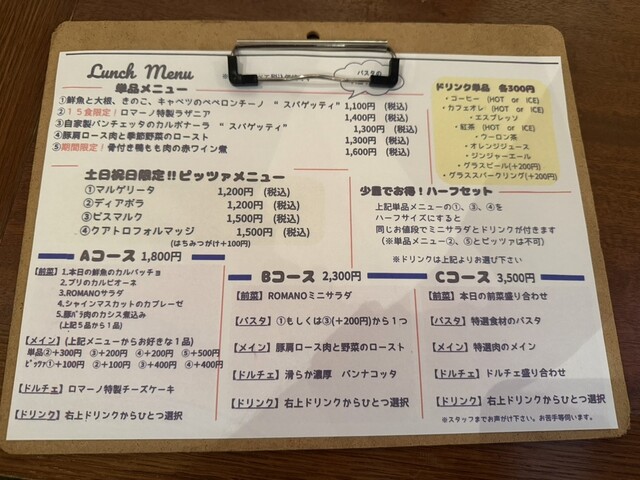 Lunch Menu
パスタの
単品メニュー
①鮮魚と大根、きのこ、キャベツのペペロンチーノ “ スパゲッティ” 1,100円 (税込)
②15食限定!ロマーノ特製ラザニア 1,400円 (税込)
③自家製パンチェッタのカルボナーラ “ スパゲッティ” 1,300円 (税込)
④豚肩ロース肉と季節野菜のロースト 1,300円 (税込)
⑤期間限定!骨付き鴨もも肉の赤ワイン煮 1,600円 (税込)
ドリンク単品 各300円
・コーヒー (HOT or ICE)
・カフェオレ (HOT or ICE)
・エスプレッソ
・紅茶 (HOT or ICE)
・ウーロン茶
・オレンジジュース
・ジンジャーエール
・グラスビール(+200円)
・グラススパークリング(+200円)
土日祝日限定!!ピッツァメニュー
①マルゲリータ 1,200円 (税込)
②ディアボラ 1,200円 (税込)
③ビスマルク 1,500円 (税込)
④クアトロフォルマッジ 1,500円 (税込)
(はちみつがけ+100円)
少量でお得!ハーフセット
上記単品メニューの①、③、④を
ハーフサイズにすると
同じお値段でミニサラダとドリンクが付きます
(※単品メニュー②、⑤とピッツァは不可)
※ドリンクは上記よりお選び下さい
Aコース 1,800円
【前菜】 1.本日の鮮魚のカルパッチョ
2.ブリのカルピオーネ
3.ROMANOサラダ
4.シャインマスカットのカプレーゼ
5.豚バラ肉のカシス煮込み
(上記5品から1品)
【メイン】 (上記メニューからお好きな1品)
単品②+300円 ③+200円 ④+200円 ⑤+500円
ピッツァ①+100円 ②+100円 ③+400円 ④+400円
【ドルチェ】 ロマーノ特製チーズケーキ
【ドリンク】 右上ドリンクからひとつ選択
Bコース 2,300円
【前菜】 ROMANOミニサラダ
【パスタ】 ①もしくは③(+200円)から1つ
【メイン】 豚肩ロース肉と野菜のロースト
【ドルチェ】 滑らか濃厚 パンナコッタ
【ドリンク】 右上ドリンクからひとつ選択
Cコース 3,500円
【前菜】 本日の前菜盛り合わせ
【パスタ】 特選食材のパスタ
【メイン】 特選肉のメイン
【ドルチェ】 ドルチェ盛り合わせ
【ドリンク】 右上ドリンクからひとつ選択
※スタッフまでお声がけ下さい。お苦手等伺います。